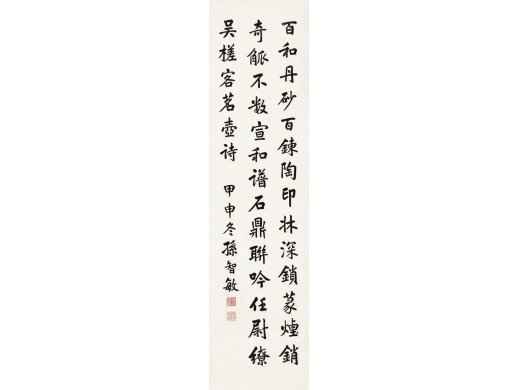 百和丹砂百鍊陶印牀深鎖篆煙銷
奇觚不數宣和譜石鼎聯吟任尉繚
吴槎客茗壺诗 甲申冬孫智敏